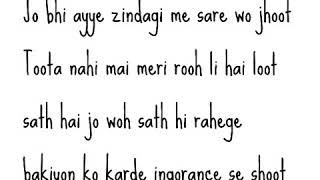 Jo bhi ayye zindagi me sare wo jhoot
Toota nahi mai meri rooh li hai loot
sath hai jo woh sath hi rahege
bakiyon ko karde ingorance se shoot